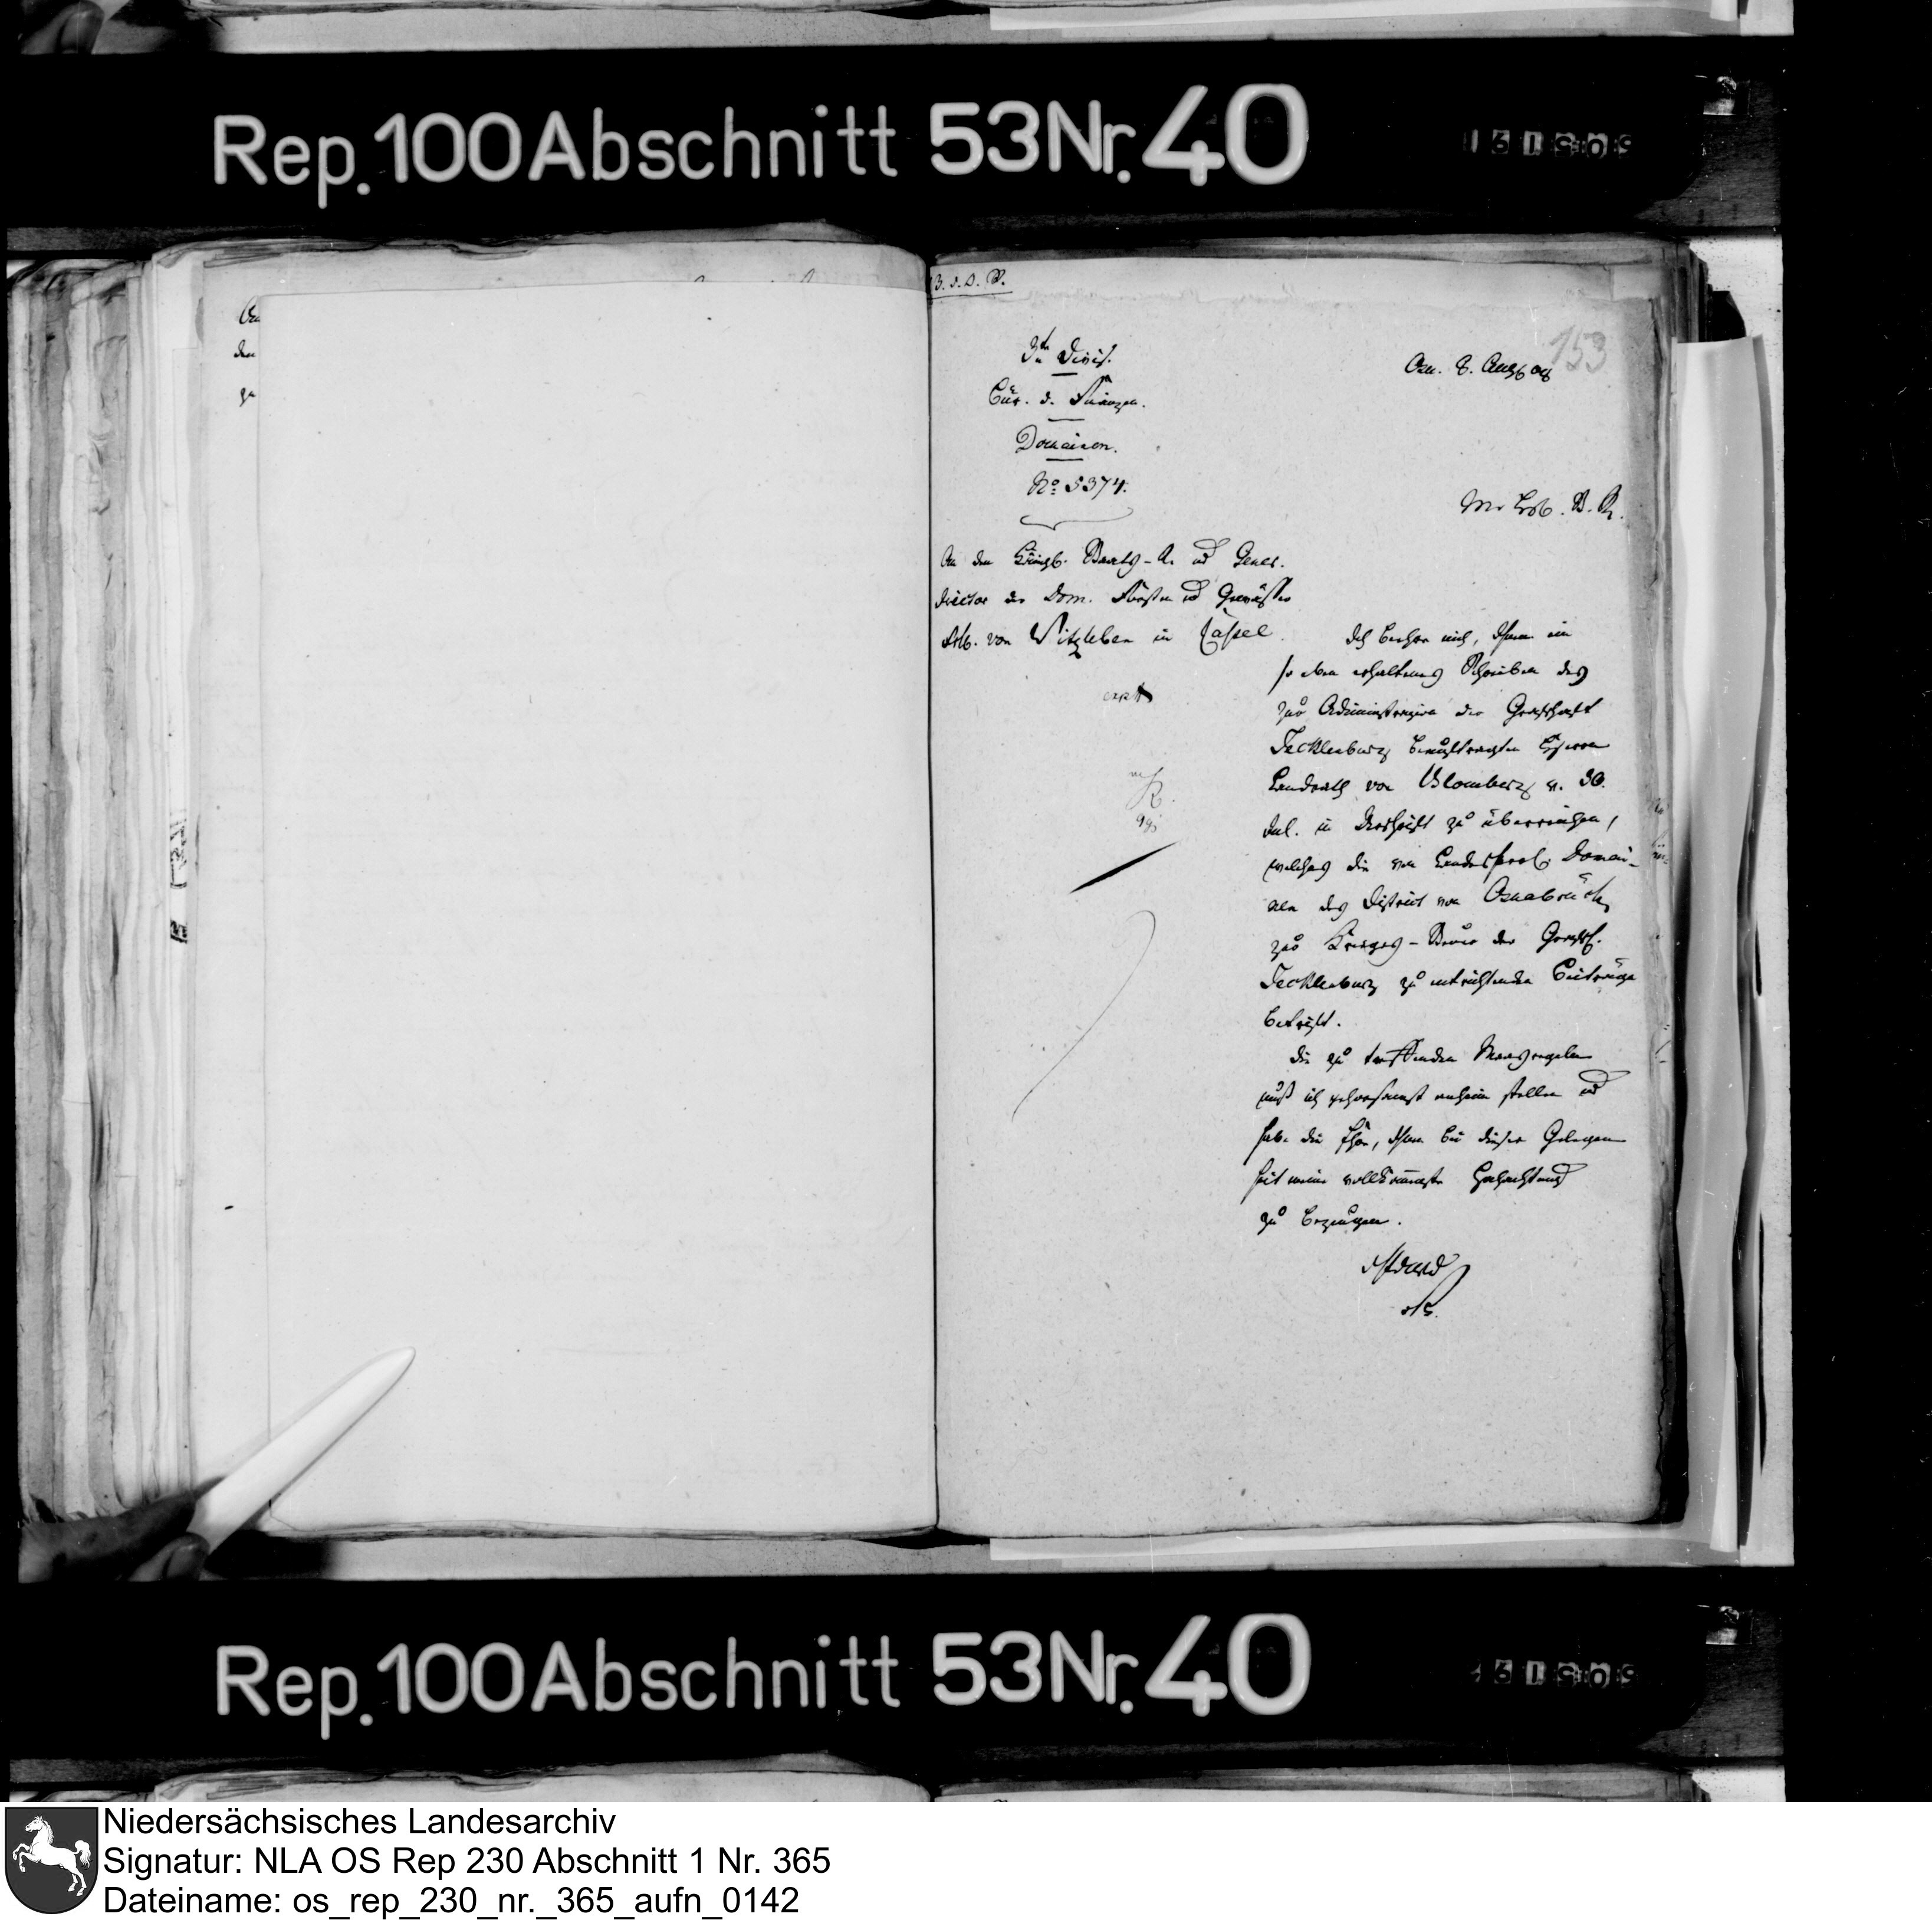 Rep. 100 Abschnitt 53 Nr. 40
B. d. D. W.
153
3te Divis.
Osn. 8. Aug 08
Bür. d. Finanzen.
Domainen.
No 5374.
An den Königl. Staats-R. und Gener.
Director der Dom. Forsten und Gewässer
von Witzleben in Cassel.
Ich beehre mich, Ihnen ein
so eben erhaltenes Schreiben des
zur Administration der Grafschaft
Tecklenburg beauftragten Herrn
Landrath von Blomberg v. 30.
Jul. in Abschrift zu überreichen,
welches die von Landesherrl. Domai-
nen des District von Osnabrück
zur Krieges-Steuer der Grafsch.
Tecklenburg zu entrichtenden Beiträge
betrifft.
Die zu treffenden Maasregeln
muß ich gehorsamst anheim stellen und
habe die Ehre, Ihnen bei dieser Gelegen
heit meine vollkommenste Hochachtung
zu bezeugen.
Rep. 100 Abschnitt 53 Nr. 40
Niedersächsisches Landesarchiv
Signatur: NLA OS Rep 230 Abschnitt 1 Nr. 365
Dateiname: os_rep_230_nr._365_aufn_0142